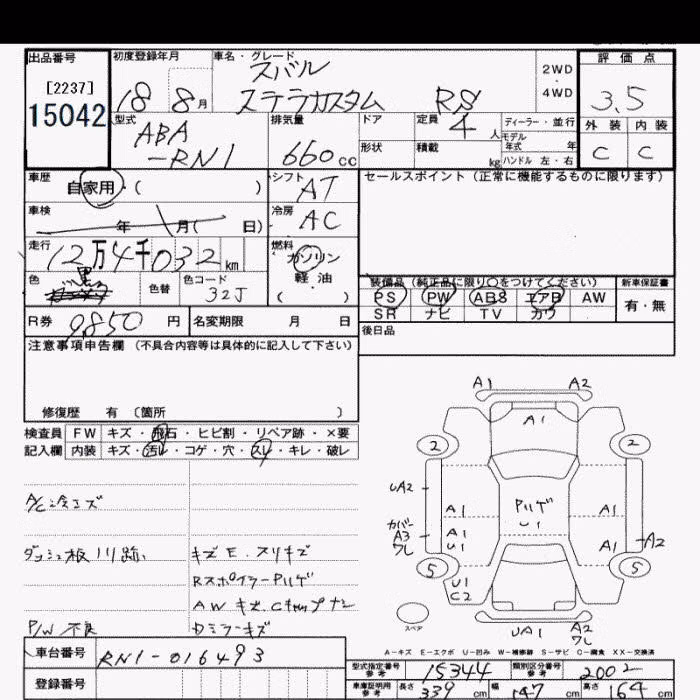 出品番号
[2237]
15042
初度登録年月
18 8月
車名・グレード
スバル
ステラカスタム RS
2WD
・
4WD
評価点
3.5
外装 内装
C C
型式
ABA
-RN1
排気量
660cc
ドア
形状
定員 4人
積載 kg
ディーラー・並行
モデル
年式 年
ハンドル 左・右
車歴
自家用・( )
シフト
AT
セールスポイント (正常に機能するものに限ります)
車検
年 月( 日)
冷房
AC
走行
12万4千032km
燃料
ガソリン
軽・油
( )
色
黒
色替
色コード
32J
装備品 (純正品に限り○をつけてください)
新車保証書
PS PW ABS エアB AW
SR ナビ TV カワ
有・無
R券 9850円
名変期限 月 日
後日品
注意事項申告欄 (不具合内容等は具体的に記入して下さい)
修復歴 有 (箇所 )
検査員 FW キズ・飛石・ヒビ割・リペア跡・×要
記入欄 内装 キズ・汚レ・コゲ・穴・スレ・キレ・破レ
A/C冷エズ
キズ E.スリキズ
RスポイラーPハゲ
P/W 不良
A1 A2
A1
2 2
UA2
Pハゲ
U1
カバー
A3
ワレ
A1
A1
U1
A1
A1
A2
5 5
U1
C2
スペア
UA1
A2
ワレ
A-キズ E-エクボ U-凹み W-補修跡 S-サビ C-腐食 XX-交換済
車台番号 RN1-016493
登録番号
型式指定番号
参考
15344
類別区分番号
参考
2002
車庫証明用
参考
長さ 339cm 幅 147cm 高さ 164cm